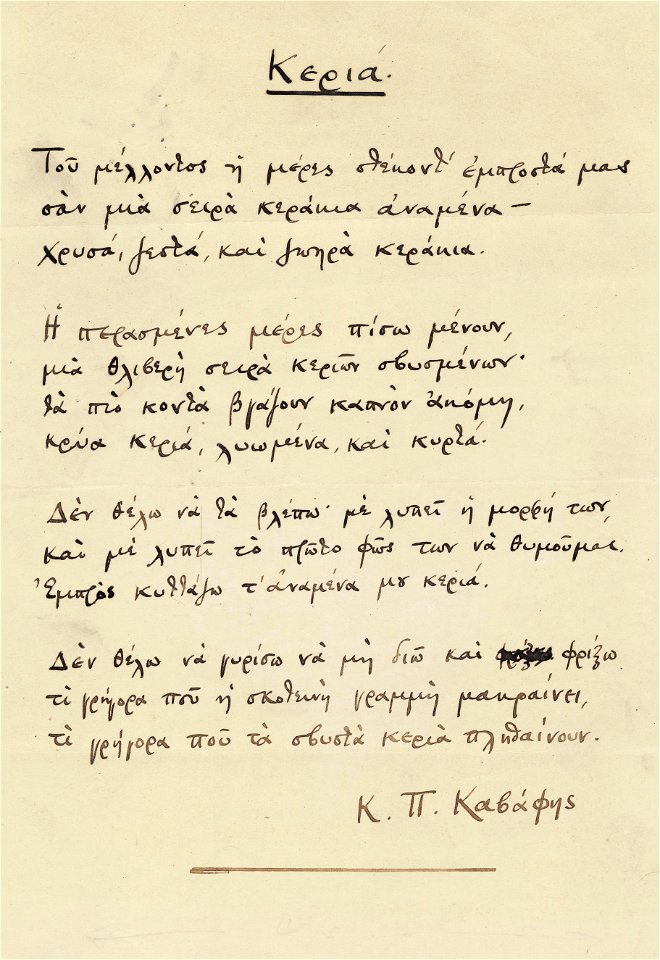 Κεριά.
Τοῦ μέλλοντος ἡ μέρες στέκοντ' ἐμπροστά μας
σὰν μιὰ σειρὰ κεράκια ἀναμένα —
χρυσά, ζεστά, καὶ ζωηρὰ κεράκια.
Ἡ περασμένες μέρες πίσω μένουν,
μιὰ θλιβερὴ σειρὰ κεριῶν σβυσμένων·
τὰ πιὸ κοντὰ βγάζουν καπνὸν ἀκόμη,
κρύα κεριά, λυωμένα, καὶ κυρτά.
Δὲν θέλω νὰ τὰ βλέπω· μὲ λυπεῖ ἡ μορφή των,
καὶ μὲ λυπεῖ τὸ πρῶτο φῶς των νὰ θυμοῦμαι.
Ἐμπρὸς κυττάζω τ' ἀναμένα μου κεριά.
Δὲν θέλω νὰ γυρίσω νὰ μὴ διῶ καὶ φρίξω
τὶ γρήγορα ποῦ ἡ σκοτεινὴ γραμμὴ μακραίνει,
τὶ γρήγορα ποῦ τὰ σβυστὰ κεριὰ πληθαίνουν.
Κ. Π. Καβάφης